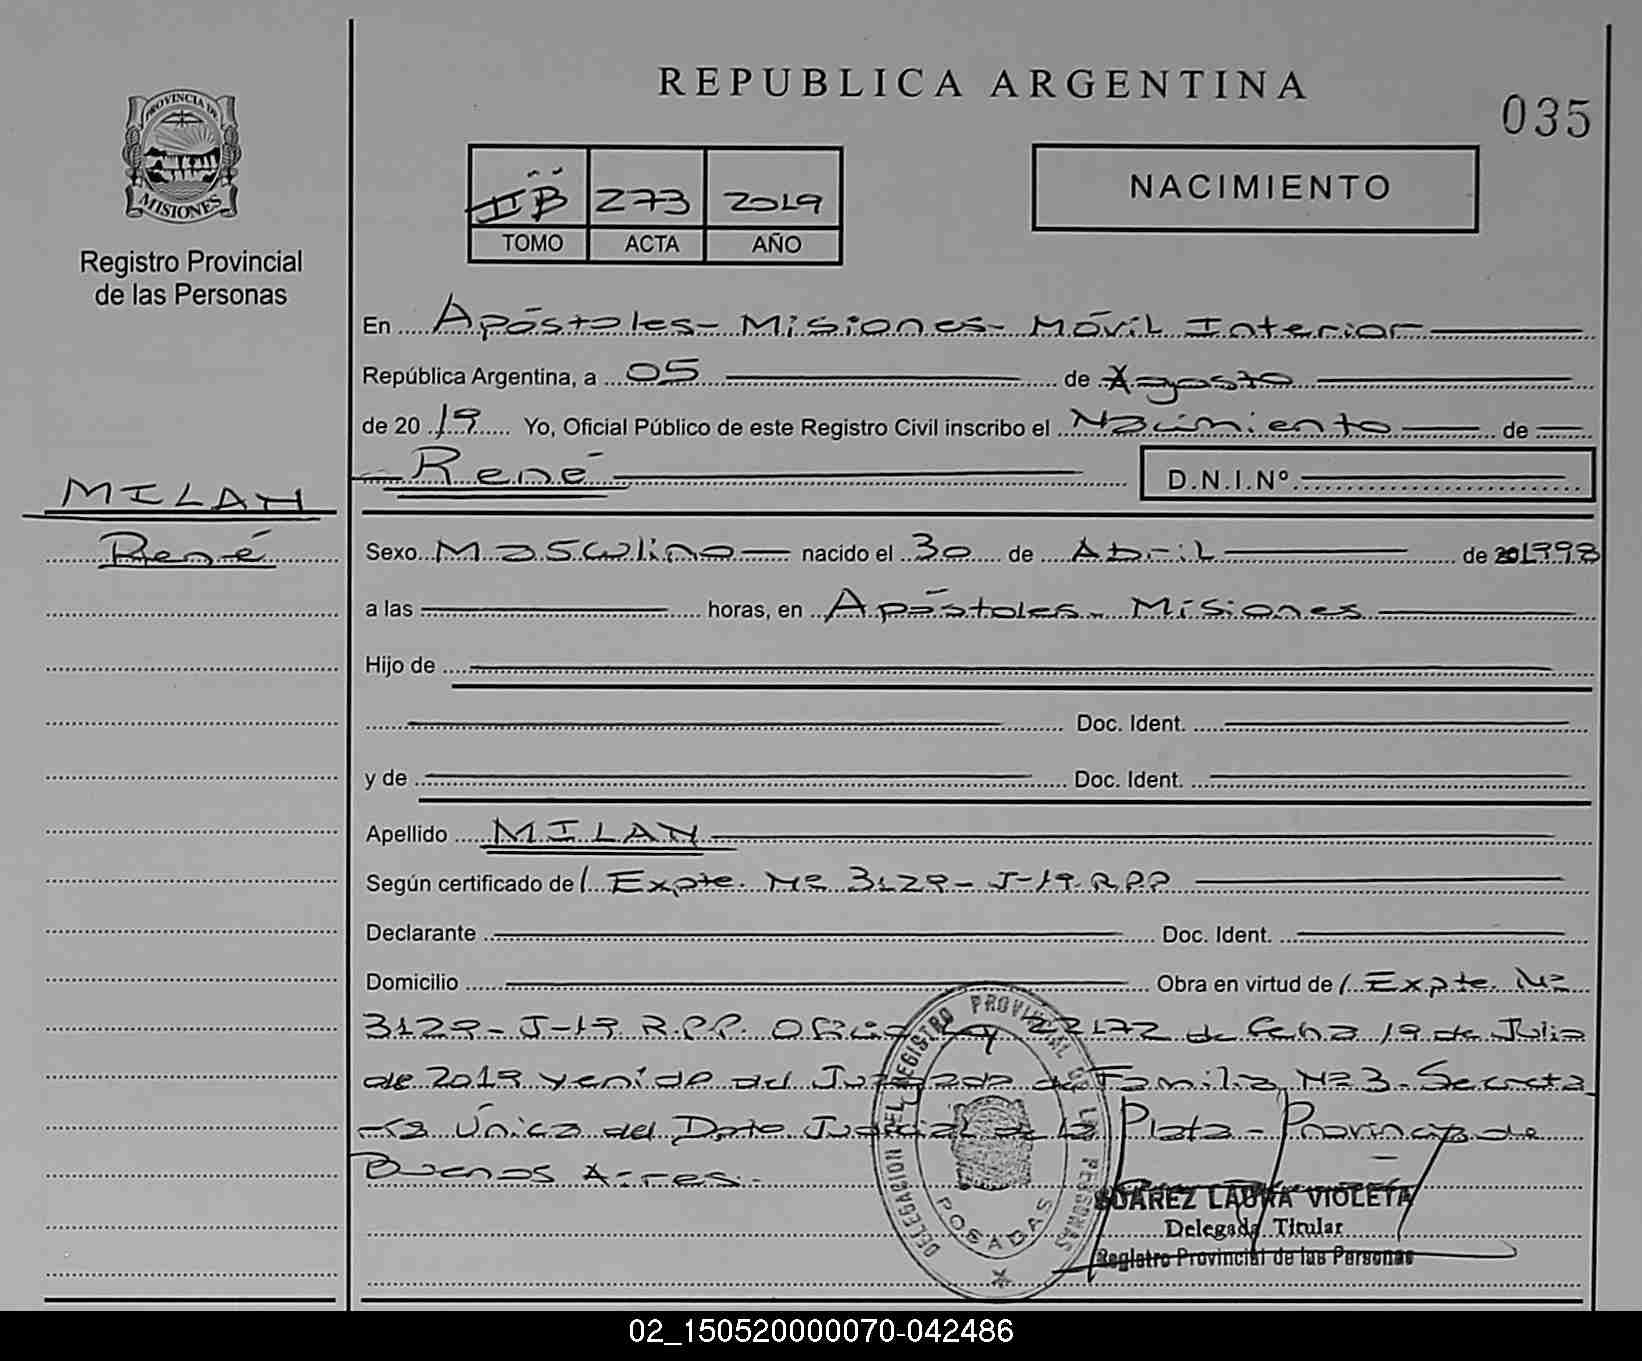 REPUBLICA ARGENTINA
035
PROVINCIA DE
MISIONES
Registro Provincial
de las Personas
II B 273 2019
TOMO ACTA AÑO
NACIMIENTO
En Apóstoles - Misiones - Móvil Interior
República Argentina, a 05 de Agosto
de 20 19 Yo, Oficial Público de este Registro Civil inscribo el Nacimiento de
René
D.N.I.Nº
MILAN
René
Sexo Masculino nacido el 30 de Abril de 1998
a las horas, en Apóstoles - Misiones
Hijo de
Doc. Ident.
y de Doc. Ident.
Apellido MILAN
Según certificado de / Expte. Nº 3129 - J-19. R.P.P
Declarante Doc. Ident.
Domicilio Obra en virtud de / Expte. Nº
3129 - J-19. R.P.P. Oficio Ley 22172 de fecha 19 de Julio
de 2019 venido del Juzgado de Familia Nº 3 - Secreta
ría Única del Dpto Judicial de La Plata - Provincia de
Buenos Aires.
DELEGACION DEL REGISTRO PROVINCIAL DE LAS PERSONAS
POSADAS
SUAREZ LAURA VIOLETA
Delegada Titular
Registro Provincial de las Personas
02_150520000070-042486